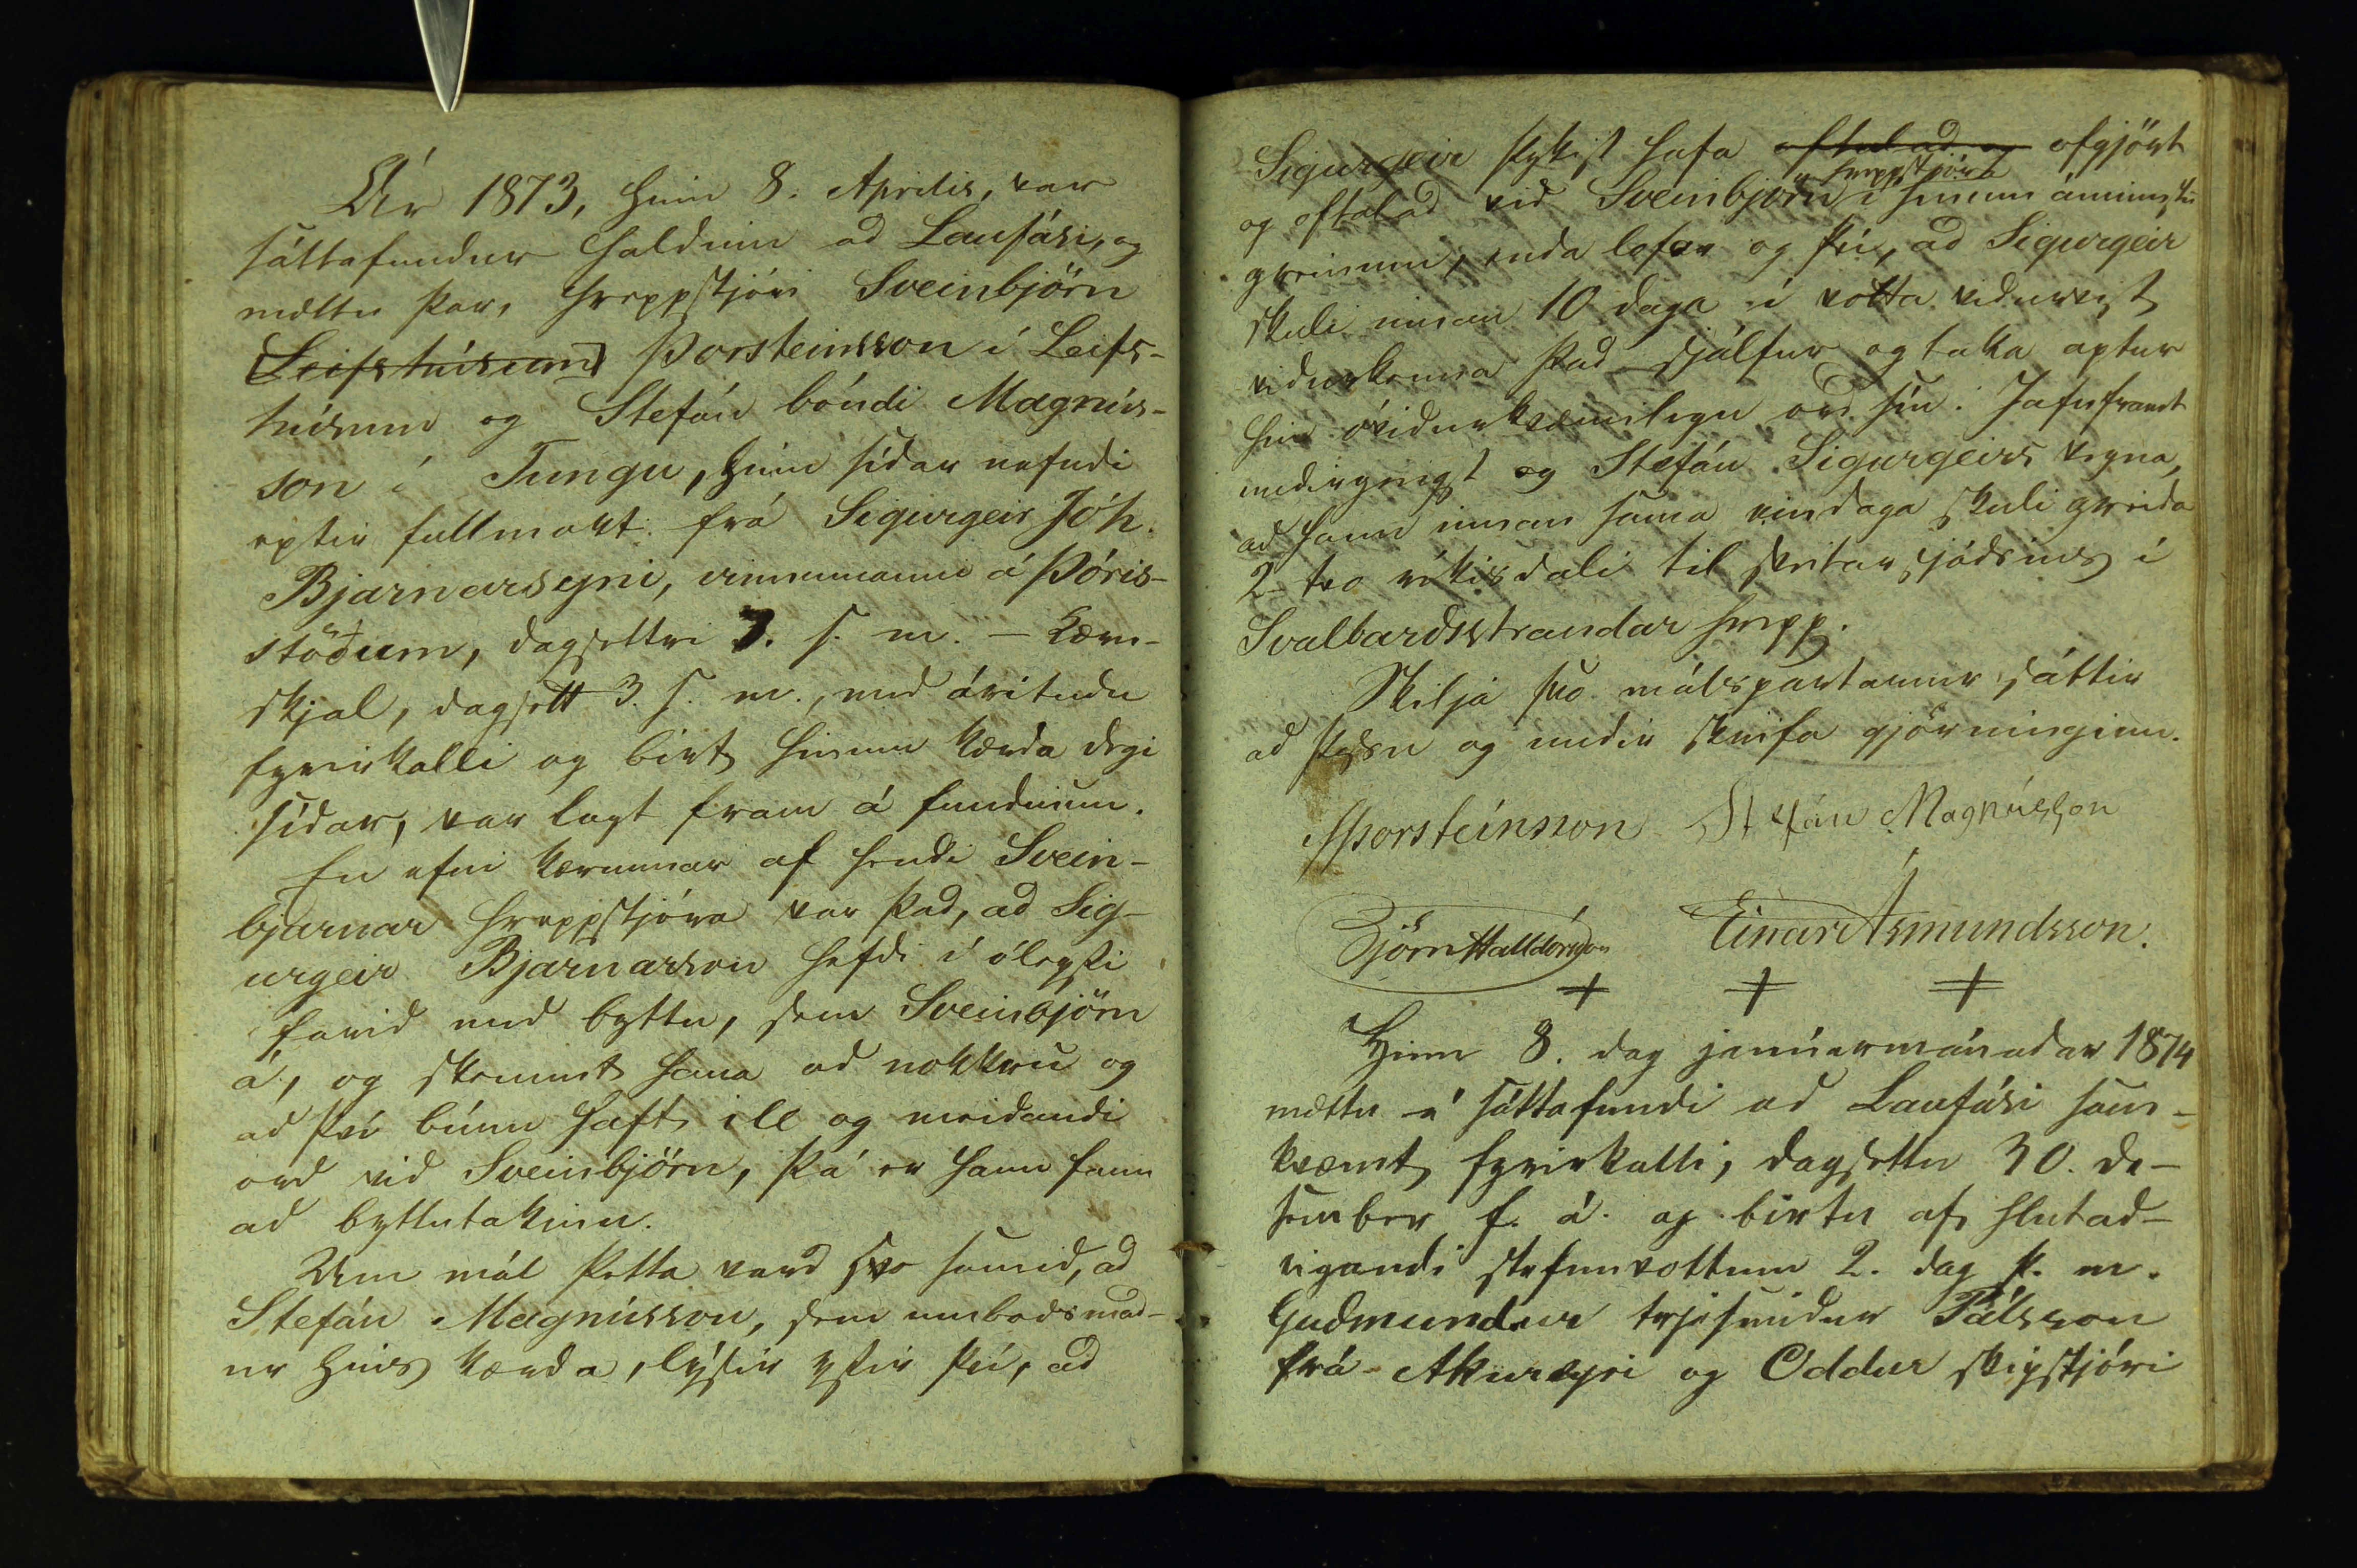 Ár 1873, hinn 8. Aprilis, var
sáttafundur haldinn ad Laufási, og
mættu þar, hreppstjóri Sveinbjörn
Leifshúsum Þorsteinsson í Leifs-
húsum og Stefán bóndi Magnús-
son í Tungu, hinn sídar nefndi
eptir fullmakt frá Sigurgeir Jóh.
Bjarnarsyni, vinnumanni á Þóris-
stöðum, dagsettri 7. s. m. – Kæru-
skjal, dagsett 3. s. m., med árituðu
fyrirkalli og birt hinum kærda degi
sídar, var lagt fram á fundinum.
En efni kærunnar af hendi Svein-
bjarnar hreppstjóra var þad, ad Sig-
urgeir Bjarnarson hefdi í óleyfi
farid med byttu, sem Sveinbjörn
á, og skemmt hana ad nokkru og
ad því búnu haft ill og meidandi
ord vid Sveinbjörn, þá er hann fann
ad byttutökunni.
Um mál þetta vard svo samid, ad
Stefán Magnússon, sem umbodsmad-
ur hins kærda, lýsir yfir því, ad
Sigurgeir þykist hafa oftalad og ofgjört
og oftalad vid Sveinbjörn hreppstjóra í hinum áminnstu
greinum, enda lofar og því, ad Sigurgeir
skuli innan 10 daga í votta viðurvist
viðurkenna þad sjálfur og taka aptur
hin óviðurkvæmilegu ord sín. Jafnframt
undirgengst og Stefán Sigurgeirs vegna,
ad hann innan sama eindaga skuli greida
2 tvo ríkisdali til sveitarsjódsins í
Svalbardsstrandar hrepp.
Skilja svo málspartarnir sáttir
ad þessu og undir skrifa gjörninginn.
SÞorsteinsson Stefán Magnússon
Björn Halldórsson Einar Ásmundsson.
+ + +
Hinn 8. dag janúarmánadar 1874
mættu á sáttafundi ad Laufási sam-
kvæmt fyrirkalli, dagsettu 30. de-
sember f. á. og birtu af hlutad-
eigandi stefnuvottum 2. dag þ. m.
Gudmundur trjesmidur Pálsson
frá Akureyri og Oddur skipstjóri